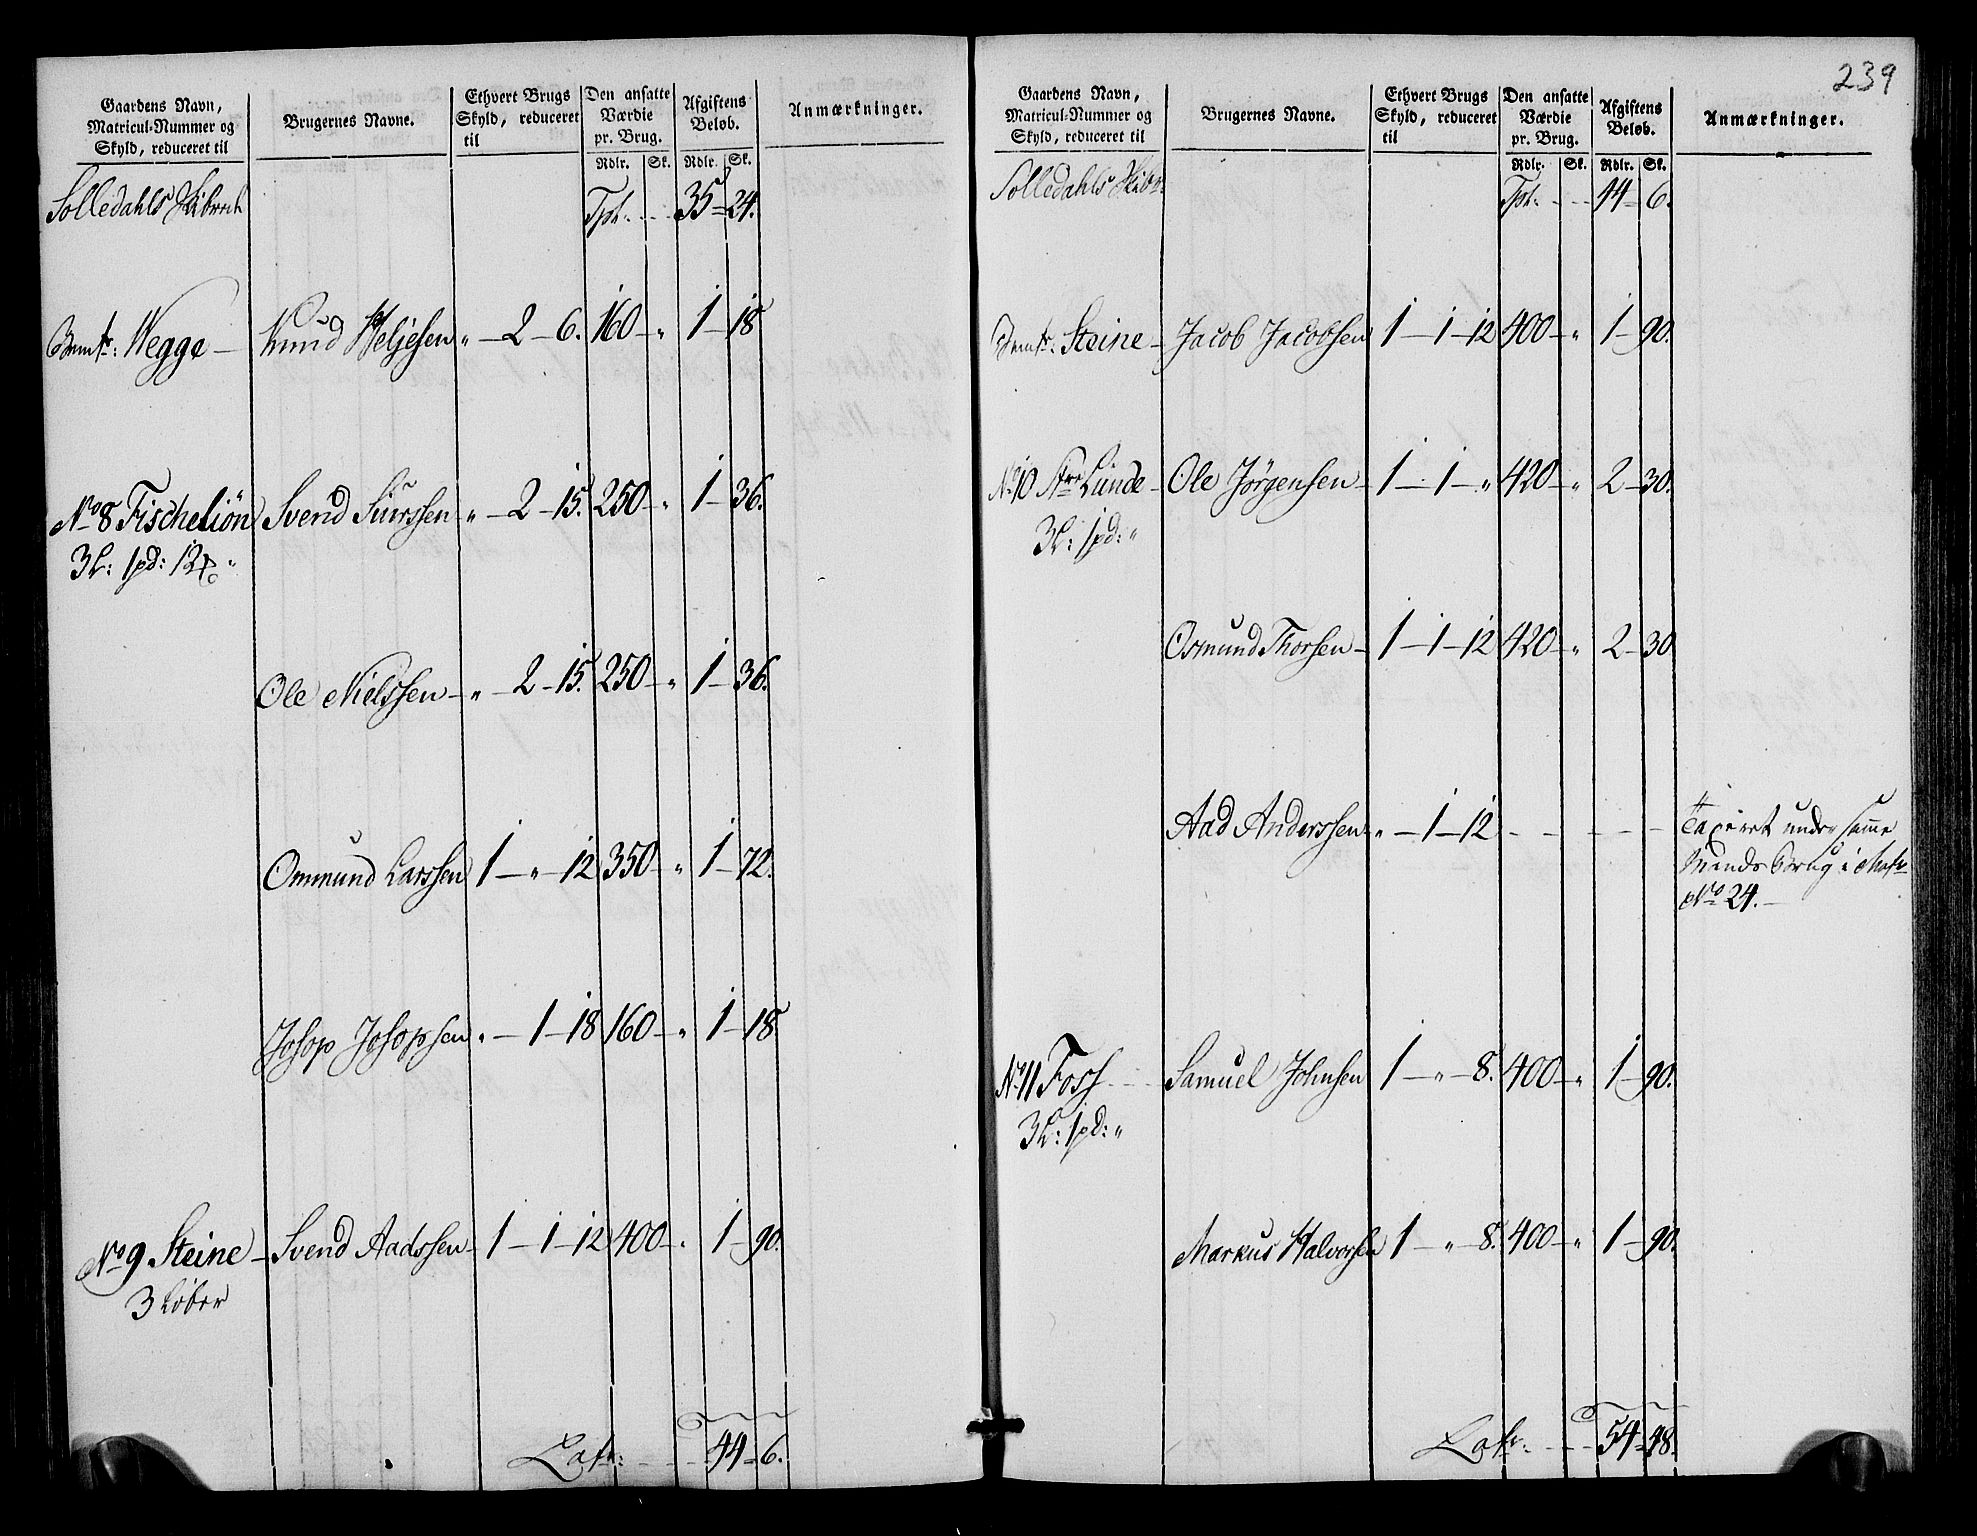 239
Gaardens Navn, Matricul-Nummer og Skyld, reduceret til | Brugernes Navne. | Ethvert Brugs Skyld, reduceret til | Den ansatte Værdie pr. Brug. | Afgiftens Beløb. | Anmærkninger.
Rdlr. Sk. Rdlr. Sk.
Solledahls Tpt: 35 24.
Wegge — Knud Heljesen „ — 2 — 6. 160 — „ 1 — 18
No 8 Fischeliön Svend Siurssen „ — 2 — 15. 250 — „ 1 — 36.
3 L: 1 pd: 12
Ole Nielssen — „ — 2 — 15. 250 — „ 1 — 36.
Ommund Larssen 1 — „ — 12 350 — „ 1 — 72.
Josop Josopsen „ — 1 — 18 160 — „ 1 — 18
No 9 Steine — Svend Aadssen — 1 — 1 — 12 400 — „ 1 — 90.
3 Løber
Lat: 44 = 6.
Gaardens Navn, Matricul-Nummer og Skyld, reduceret til | Brugernes Navne. | Ethvert Brugs Skyld, reduceret til | Den ansatte Værdie pr. Brug. | Afgiftens Beløb. | Anmærkninger.
Rdlr. Sk. Rdlr. Sk.
Solledahls Skibr: Tpt: 44 = 6.
Steine — Jacob Jacobsen 1 — 1 — 12 400 — „ 1 — 90.
No 10 Lunde — Ole Jørgensen — 1 — 1 — „ 420 — „ 2 — 30.
3 L: 1 pd: „
Osmund Thorsen — 1 — 1 — 12 420 — „ 2 — 30
Aad Anderssen „ — 1 — 12 — — — — Taxeret under samme
Mands Brug i
No 24. —
No 11 Foss — Samuel Johnsen 1 — „ — 8. 400 — „ 1 — 90.
3 L: 1 pd: „
Markus Halvorsen 1 — „ — 8. 400 — „ 1 — 90.
Lat: 54 = 48.